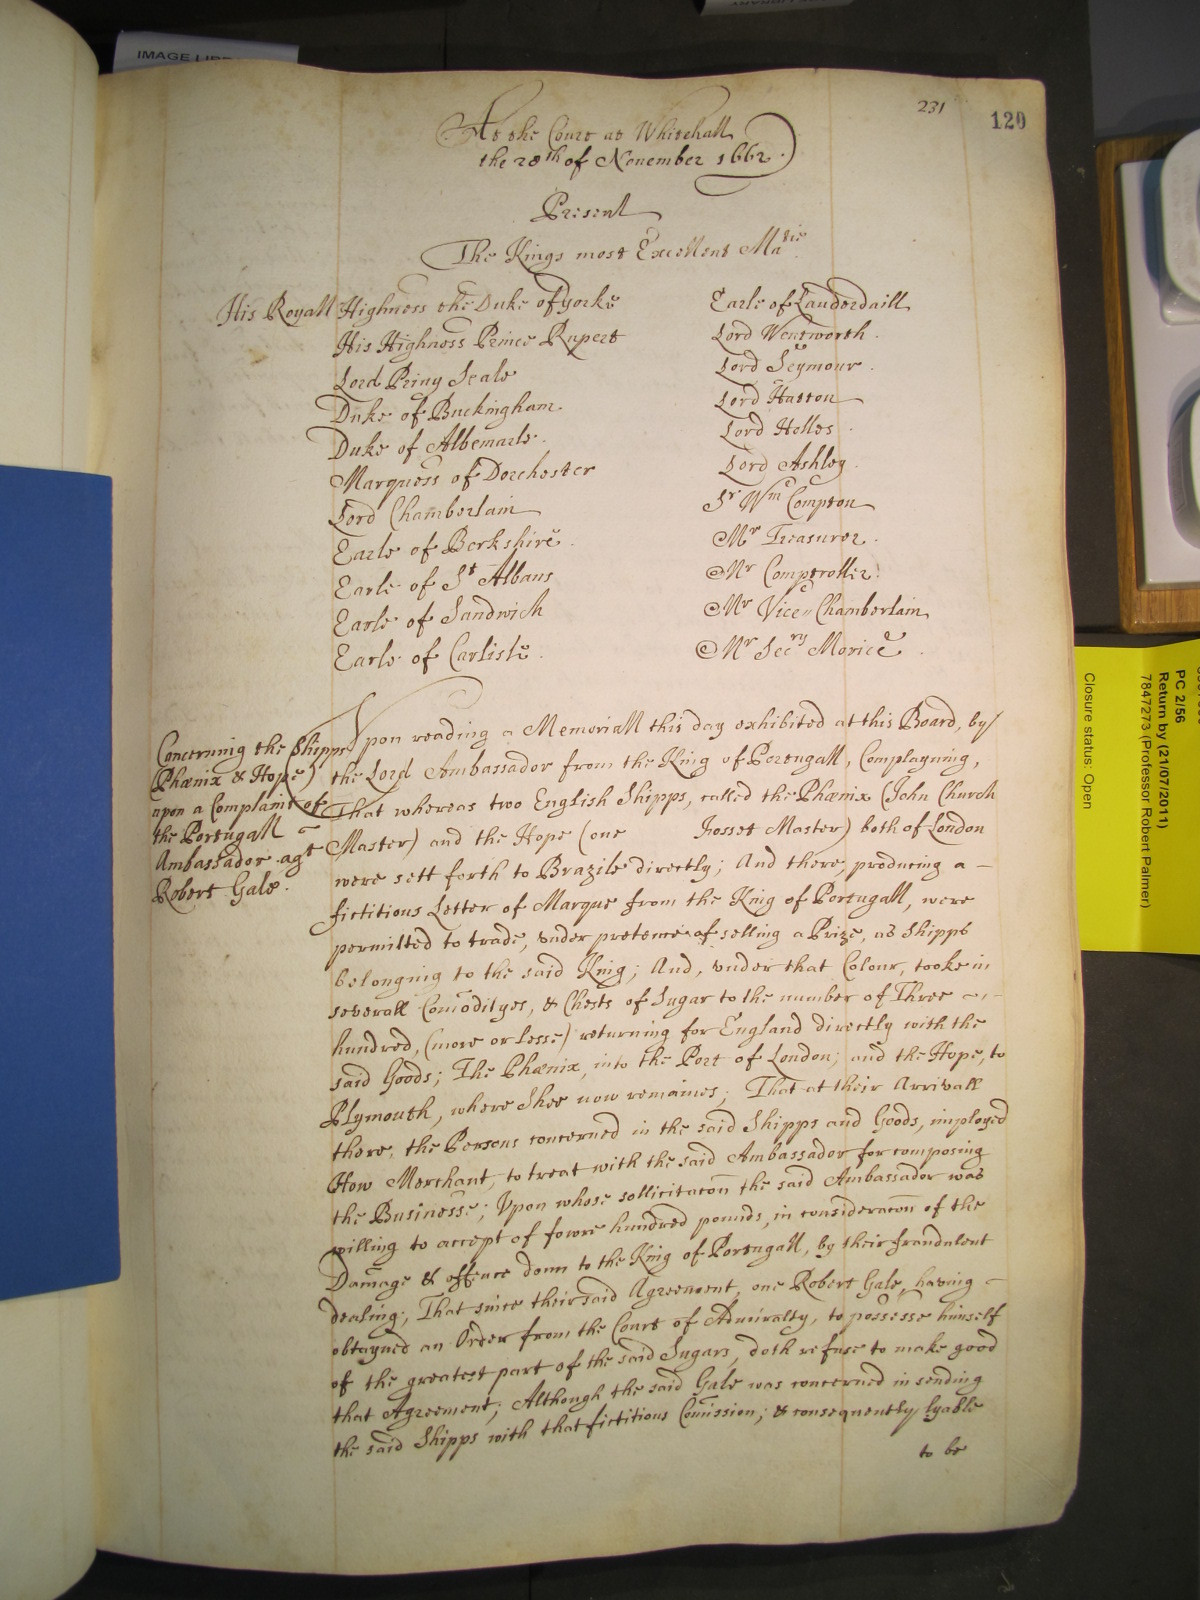 IMAGE LIBR
231
129
At the Court at Whitehall
the 28th of November 1662.
Present
The Kings most Excellent Matie
His Royall Highness the Duke of Yorke
His Highness Prince Rupert
Lord Privy Seale
Duke of Buckingham.
Duke of Albemarle.
Marquess of Dorchester
Lord Chamberlain
Earle of Berkshire.
Earle of St Albans
Earle of Sandwich
Earle of Carlisle.
Earle of Lauderdaill
Lord Wentworth.
Lord Seymour.
Lord Hatton
Lord Holles.
Lord Ashley.
Sr Wm Compton
Mr Treasurer.
Mr Comptroller.
Mr Vice-Chamberlain
Mr Secry Morice.
Concerning the Shipps
(Phænix & Hope)
upon a Complaint of
the Portugall
Ambassador agt
Robert Gale.
Upon reading a Memoriall this day exhibited at this Board, by
the Lord Ambassador from the King of Portugall, Complayning,
That whereas two English Shipps, called the Phænix (John Church
Master) and the Hope (one Gosset Master) both of London
were sett forth to Brazile directly; And there, producing a
fictitious Letter of Marque from the King of Portugall, were
permitted to trade, under pretence of selling a Prize, as Shipps
belonging to the said King; And, under that Colour, tooke in
severall Com̄odityes, & Chests of Sugar to the number of Three
hundred, (more or lesse) returning for England directly with the
said Goods; The Phænix, into the Port of London; and the Hope, to
Plymouth, where Shee now remaines; That at their Arrivall
there, the Persons concerned in the said Shipps and Goods, imployed
How Merchant, to treat with the said Ambassador for composing
the Businesse; Upon whose sollicitacon̄ the said Ambassador was
willing to accept of fowre hundred pounds, in consideracon̄ of the
Damage & offence donn to the King of Portugall, by their fraudulent
dealing; That since their said Agreement, one Robert Gale, having
obtayned an Order from the Court of Admiralty, to possesse himself
of the greatest part of the said Sugars, doth refuse to make good
that Agreement; Although the said Gale was concerned in sending
the said Shipps with that fictitious Com̄ission; & consequently lyable
to be
PC 2/56
Return by (21/07/2011)
7847273 (Professor Robert Palmer)
Closure status: Open